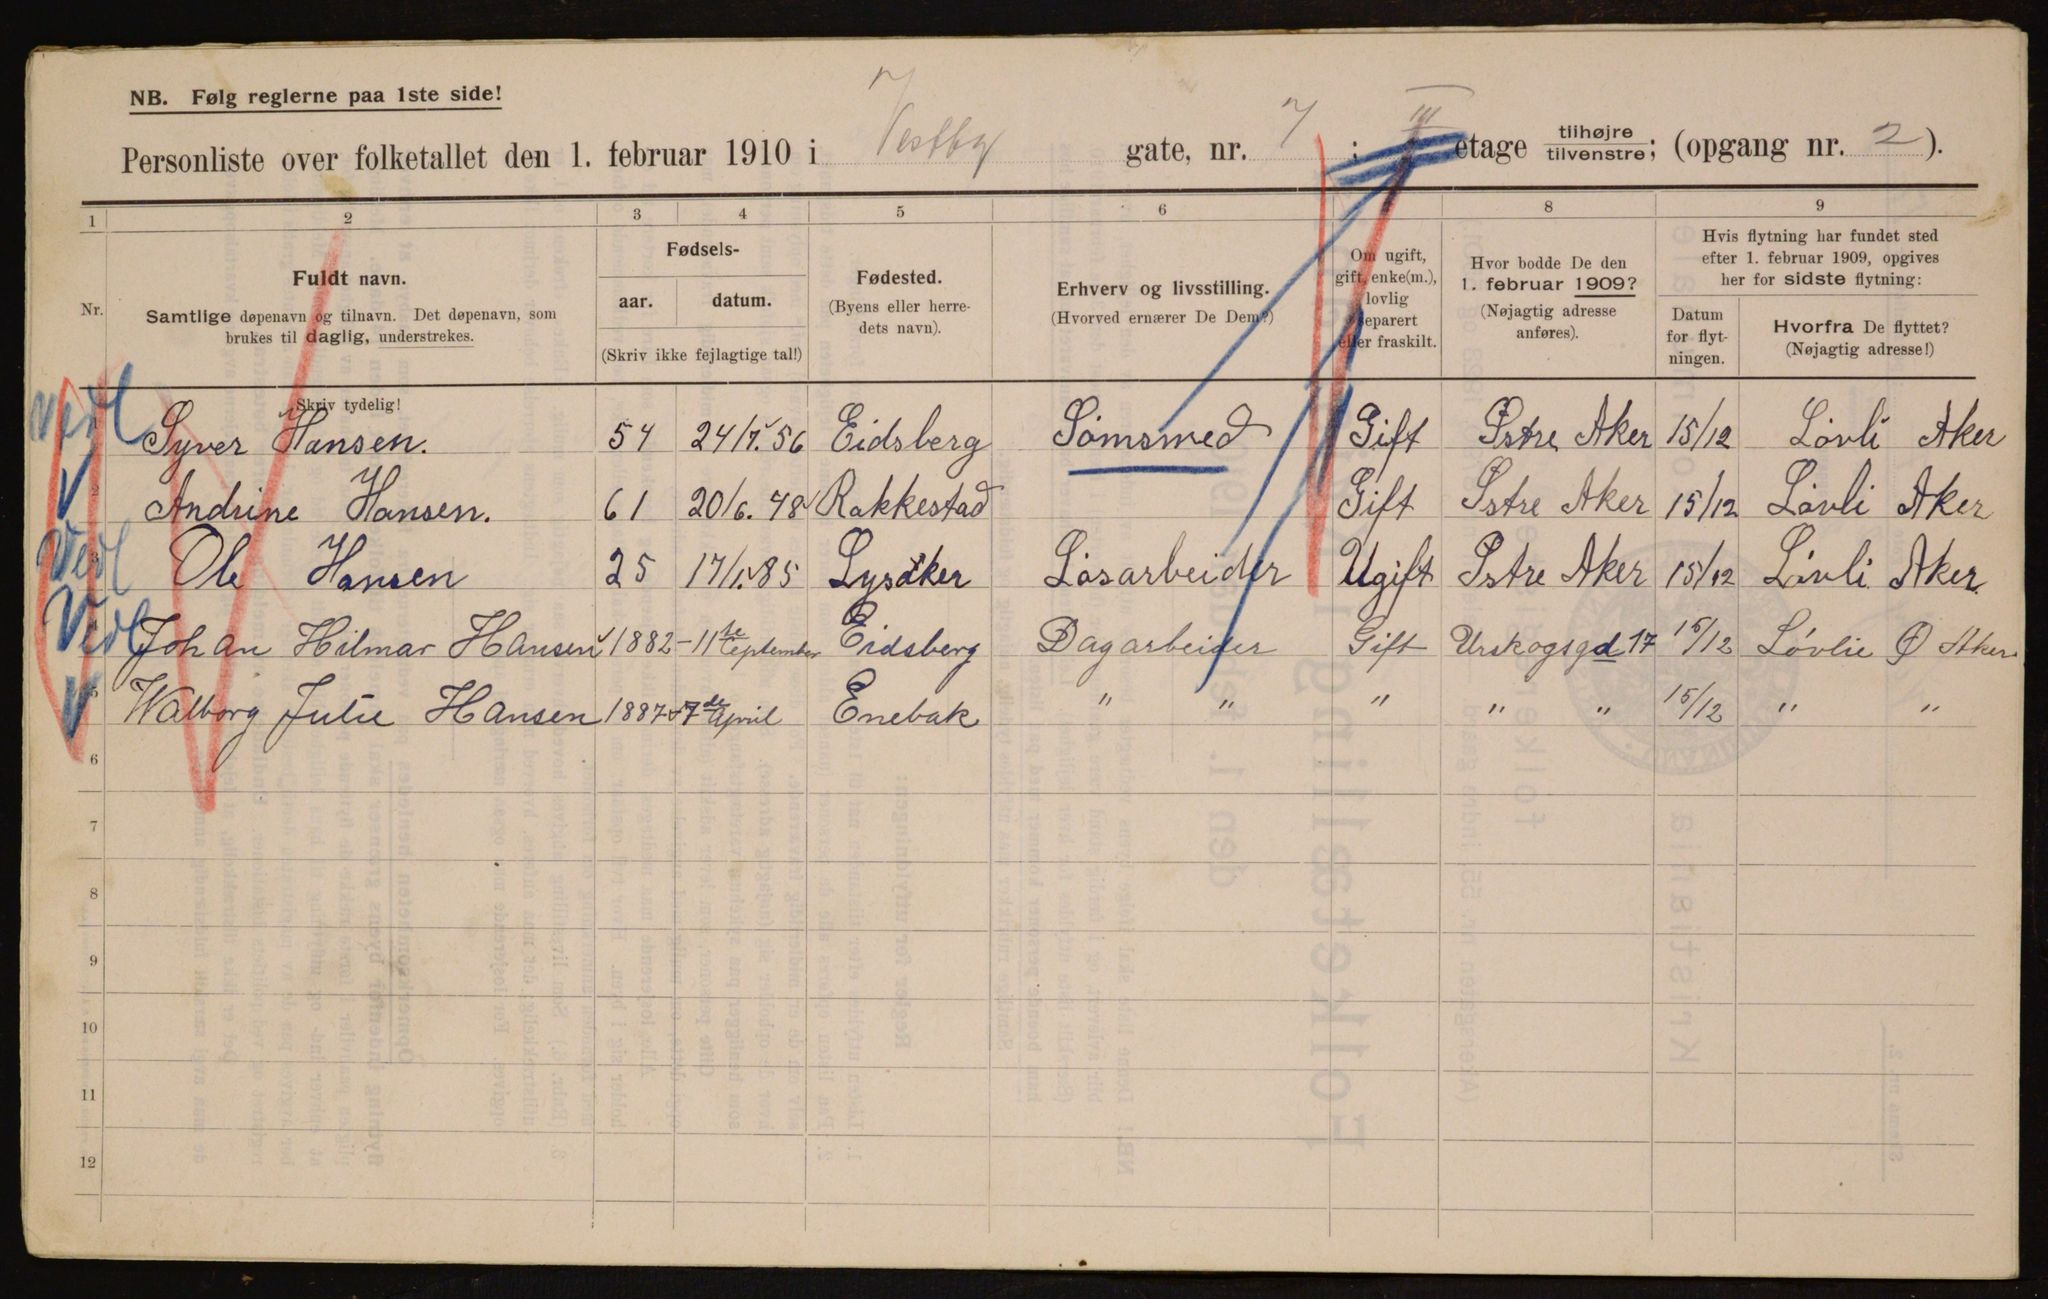 NB. Følg reglerne paa 1ste side!
Personliste over folketallet den 1. februar 1910 i Vestby gate, nr. 7 ; III etage tilhøjre tilvenstre; (opgang nr. 2 ).
1 2 3 4 5 6 8 9
Nr.
Fuldt navn.
Samtlige døpenavn og tilnavn. Det døpenavn, som
brukes til daglig, understrekes.
Skriv tydelig!
Fødsels-
aar. datum.
(Skriv ikke fejlagtige tal!)
Fødested.
(Byens eller herre-
dets navn).
Erhverv og livsstilling.
(Hvorved ernærer De Dem?)
Om ugift,
gift, enke(m.),
lovlig
separert
eller fraskilt.
Hvor bodde De den
1. februar 1909?
(Nøjagtig adresse
anføres).
Hvis flytning har fundet sted
efter 1. februar 1909, opgives
her for sidste flytning:
Datum
for flyt-
ningen.
Hvorfra De flyttet?
(Nøjagtig adresse!)
Vedl Syver Hansen. 54 24/7. 56 Eidsberg Sømsmed Gift Østre Aker 15/12 Løvli Aker
2 Andrine Hansen. 61 20/6. 48 Rakkestad Gift Østre Aker 15/12 Løvli Aker
Vedl 3 Ole Hansen 25 17/1. 85 Lysaker Løsarbeider Ugift Østre Aker 15/12 Løvli Aker
Vedl Johan Hilmar Hansen 1882 - 11te September Eidsberg Dagarbeider Gift Urskogsgd 17 15/12 Løvlie Ø Aker
5 Walborg Julie Hansen 1887 - 7de April Enebak " " " " " 15/12 " "
6
7
8
9
10
11
12